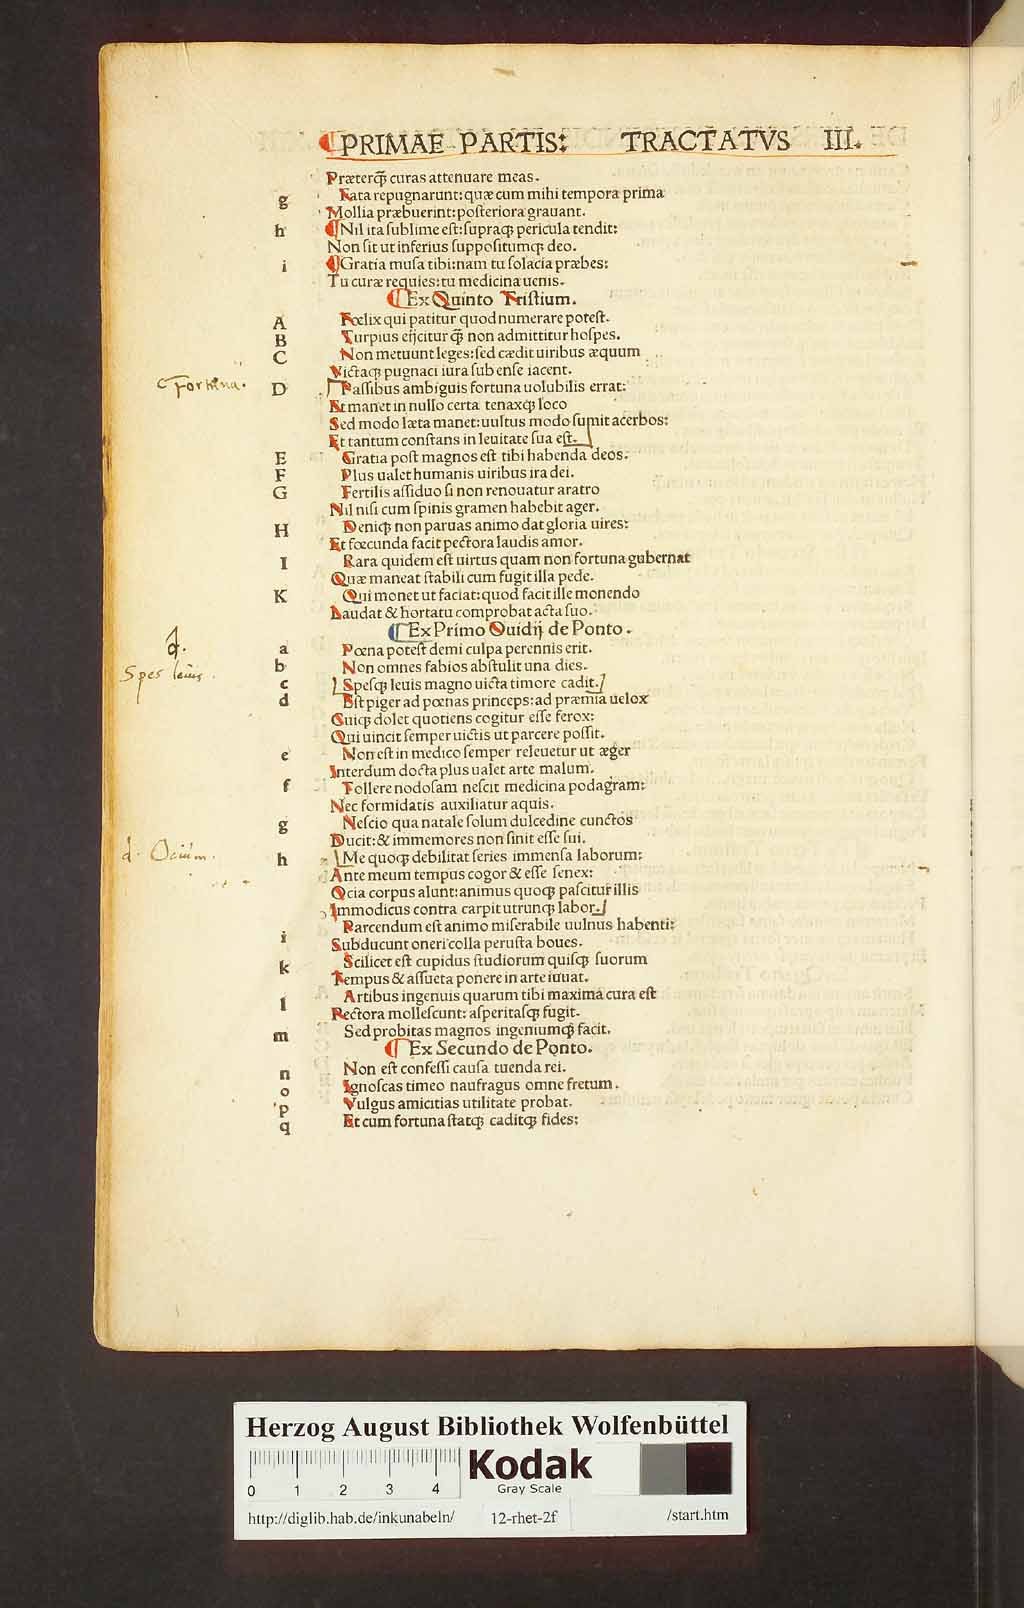 ¶PRIMAE PARTIS: TRACTATVS III.
Præterq̄ curas attenuare meas.
g Fata repugnarunt: quæ cum mihi tempora prima
Mollia præbuerint: posteriora grauant.
h ¶Nil ita sublime est: supraq; pericula tendit:
Non sit ut inferius suppositumq; deo.
i ¶Gratia musa tibi: nam tu solacia præbes:
Tu curæ requies: tu medicina uenis.
¶Ex Quinto Tristium.
A Fœlix qui patitur quod numerare potest.
B Turpius eijcitur q̄ non admittitur hospes.
C Non metuunt leges: sed cædit uiribus æquum
Victaq; pugnaci iura sub ense iacent.
Fortuna.
D Passibus ambiguis fortuna uolubilis errat:
Et manet in nullo certa tenaxq; loco
Sed modo læta manet: uultus modo sumit acerbos:
Et tantum constans in leuitate sua est.
E Gratia post magnos est tibi habenda deos.
F Plus ualet humanis uiribus ira dei.
G Fertilis assiduo si non renouatur aratro
Nil nisi cum spinis gramen habebit ager.
H Deniq; non paruas animo dat gloria uires:
Et fœcunda facit pectora laudis amor.
I Rara quidem est uirtus quam non fortuna gubernat
Quæ maneat stabili cum fugit illa pede.
K Qui monet ut facias: quod facit ille monendo
Laudat & hortatu comprobat acta suo.
¶Ex Primo Ouidij de Ponto.
a Pœna potest demi culpa perennis erit.
b Non omnes fabios abstulit una dies.
Spes leuis.
c Spesq; leuis magno uicta timore cadit.
d Est piger ad pœnas princeps: ad præmia uelox
Cuiq; dolet quotiens cogitur esse ferox:
Qui uincit semper uictis ut parcere possit.
e Non est in medico semper releuetur ut æger
Interdum docta plus ualet arte malum.
f Tollere nodosam nescit medicina podagram:
Nec formidatis auxiliatur aquis.
g Nescio qua natale solum dulcedine cunctos
Ducit: & immemores non sinit esse sui.
d. Ocium.
h Me quoq; debilitat series immensa laborum:
Ante meum tempus cogor & esse senex:
Ocia corpus alunt: animus quoq; pascitur illis
Immodicus contra carpit utrunq; labor.
i Parcendum est animo miserabile uulnus habenti:
Subducunt oneri colla perusta boues.
k Scilicet est cupidus studiorum quisq; suorum
Tempus & assueta ponere in arte iuuat.
l Artibus ingenuis quarum tibi maxima cura est
Pectora mollescunt: asperitasq; fugit.
m Sed probitas magnos ingeniumq; facit.
¶Ex Secundo de Ponto.
n Non est confessi causa tuenda rei.
o Ignoscas timeo naufragus omne fretum.
p Vulgus amicitias utilitate probat.
q Et cum fortuna statq; caditq; fides:
Herzog August Bibliothek Wolfenbüttel
0 1 2 3 4
Kodak
Gray Scale
http://diglib.hab.de/inkunabeln/ 12-rhet-2f /start.htm